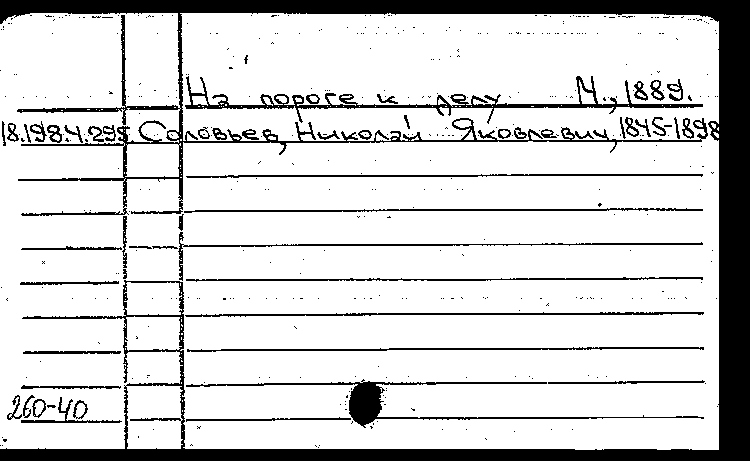 На пороге к делу М., 1889.
18.198.4.295 Соловьев, Николай Яковлевич, 1845-1898
260-40